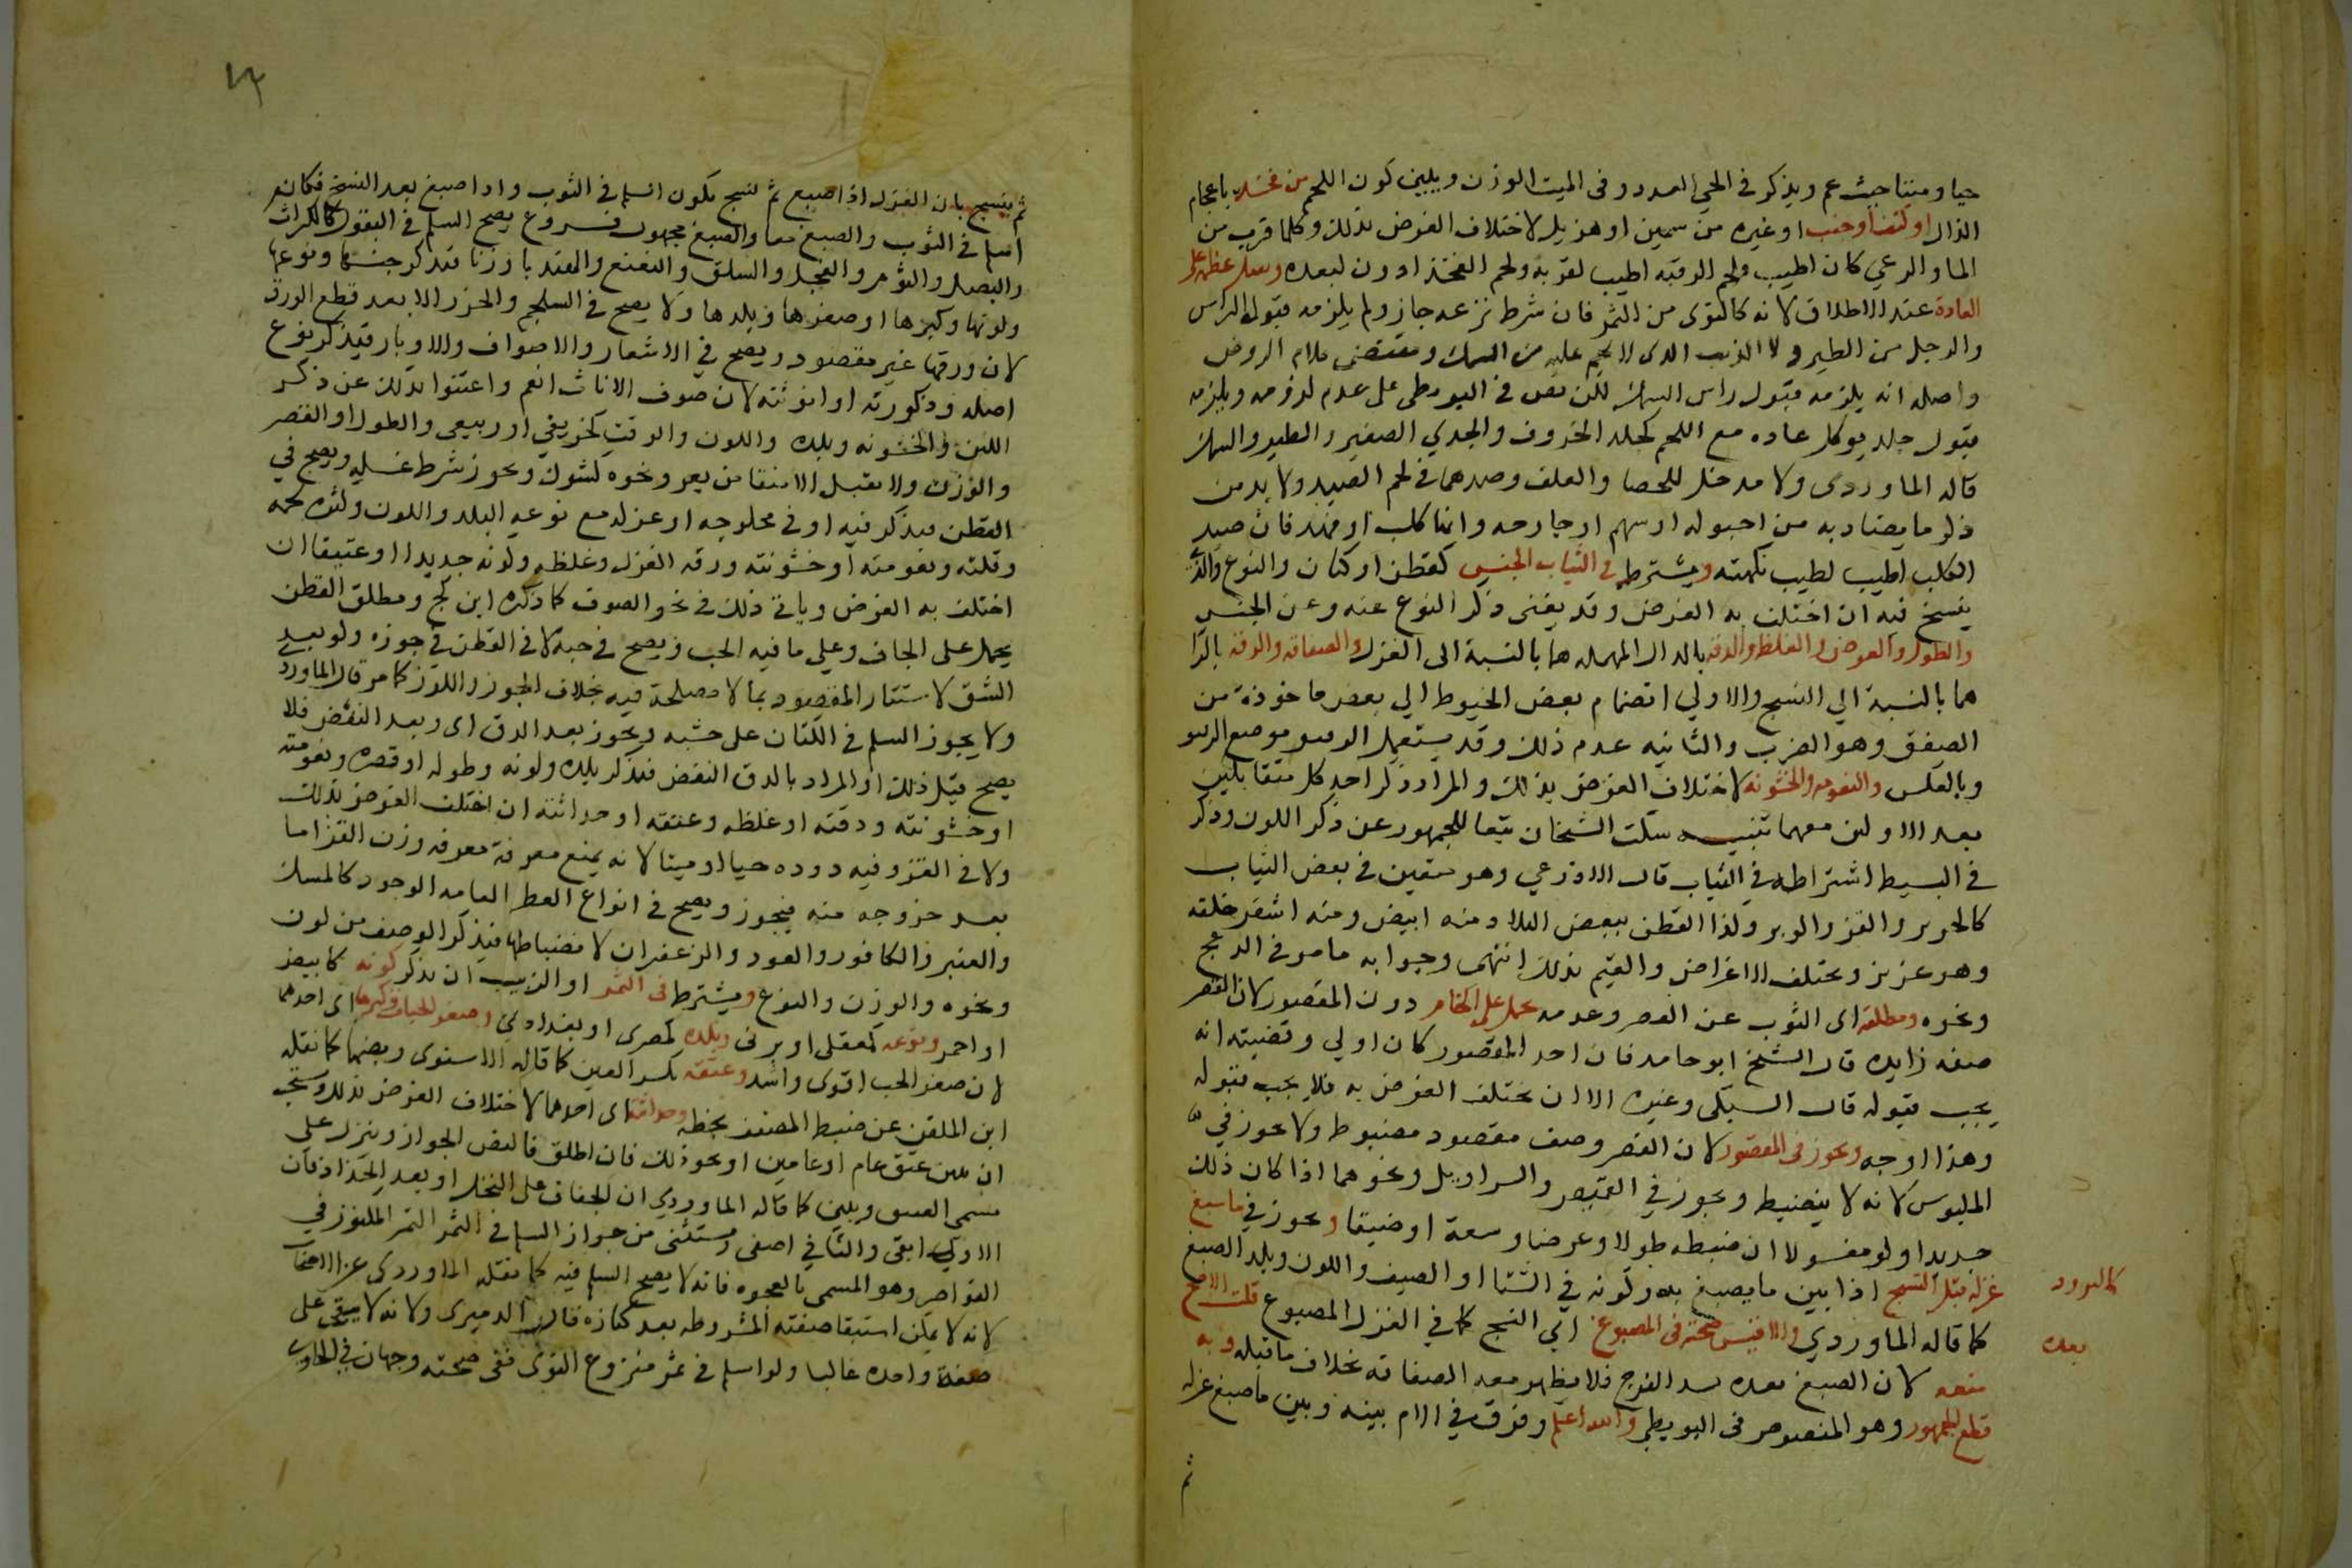 حيا وميتا حيث عم ويذكر في الحي العدد وفي الميت الوزن ويبين كون اللحم من فخذ باعجام
الذال او كتف او جنب او غيره من سمين او هزيل لاختلاف الغرض بذلك وكلما قرب من
الما والرعي كان اطيب ولحم الرقبه اطيب لقربه ولحم الفخذ ادون لبعده ويقبل عظم على
العادة عند الاطلاق لانه كالنوى من التمر فان شرط نزعه جاز ولم يلزمه قبول الراس
والرجل من الطير ولا الذنب الذي لا لحم عليه من السمك ومقتضى كلام الروض
واصله انه يلزمه قبول راس السمك لكن نص في البويطي على عدم لزومه ويلزمه
قبول جلد يوكل عاده مع اللحم كجلد الخروف والجدي الصغير والطير والسمك
قاله الماوردى ولا مدخل للخصا والعلف وضدهما في لحم الصيد ولا بد من
ذكر ما يصاد به من احبوله او سهم او جارحه وانها كلب او فهد فان صيد
الكلب اطيب لطيب نكهته ويشترط في الثياب الجنس كقطن او كتان والنوع والبلد
ينسج فيه ان اختلف به الغرض وقد يغنى ذكر النوع عنه وعن الجنس
والطول والعرض والغلظ والدقه بالدال المهمله هما بالنسبة الى الغزل والصفاقه والرقه بالرا
هما بالنسبة الي النسج والاولي انضمام بعض الخيوط الي بعض ماخوذة من
الصفق وهو الضرب والثانيه عدم ذلك وقد يستعمل الدقيق موضع الرقيق
وبالعكس والنعومه والخشونه لاختلاف الغرض بذلك والمراد ذكر احد كل متقابلين
بعد الاولين معهما تنبيه سكت الشيخان تبعا للجمهور عن ذكر اللون وذكر
في البسيط اشتراطه في الثياب قال الاذرعي وهو متعين في بعض الثياب
كالحرير والقز والوبر وكذا القطن ببعض البلاد منه ابيض ومنه اشقر خلقه
وهو عزيز وتختلف الاغراض والقيم بذلك انتهى وجوابه ما مر في الدعج
ونحوه ومطلقه اى الثوب عن القصر وعدمه يحمل على الخام دون المقصور لان القصر
صفه زايده قال الشيخ ابو حامد فان احضر المقصور كان اولي وقضيته انه
يجب قبوله قال السبكى وغيره الا ان يختلف الغرض به فلا يجب قبوله
وهذا اوجه ويجوز في المقصور لان القصر وصف مقصود مضبوط ولا يجوز في
الملبوس لانه لا ينضبط ويجوز في القميص والسراويل ونحوهما اذا كان ذلك
جديدا ولو مغسولا ان ضبطه طولا وعرضا وسعة او ضيقا ويجوز في ما صبغ
غزله قبل النسج اذا بين ما يصبغ به وكونه في الشتا او الصيف واللون وبلد الصبغ
كالبرود
كما قاله الماوردي والاقيس صحته في المصبوغ اي النسج كما في الغزل المصبوغ قلت الاصح
بعده
منعه لان الصبغ بعده يسد الفرج فلا يظهر معه الصفاقه بخلاف ما قبله وبه
قطع الجمهور وهو المنصوص في البويطي والله اعلم وفرق في الام بينه وبين ما صبغ غزله
ثم
ثم ينسج بان الغزل اذا صبغ ثم نسج يكون السلم في الثوب واذا صبغ بعد النسج فكانه
اسلم في الثوب والصبغ معا والصبغ مجهول فروع يصح السلم في البقول كالكراث
والبصل والثوم والفجل والسلق والنعنع والهندبا وزنا فيذكر جنسها ونوعها
ولونها وكبرها او صغرها وبلدها ولا يصح في السلجم والجزر الا بعد قطع الورق
لان ورقها غير مقصود ويصح في الاشعار والاصواف والاوبار فيذكر نوع
اصله وذكورته او انوثته لان صوف الاناث انعم واغتنوا بذلك عن ذكر
اللين والخشونه وبلده واللون والوقت كخريفي او ربيعي والطول او القصر
والوزن ولا يقبل الا منقا من بعر ونحوه كشوك ويجوز شرط غسله ويصح في
القطن فيذكر فيه او في محلوجه او غزله مع نوعه البلد واللون وكثرة لحمه
وقلته ونعومته او خشونته ورقه الغزل وغلظه وكونه جديدا او عتيقا ان
اختلف به الغرض وياتي ذلك في نحو الصوف كما ذكره ابن كج ومطلق القطن
يحمل على الجاف وعلي ما فيه الحب ويصح في حبه لا في القطن في جوزه ولو بعد
الشق لاستتار المقصود بما لا مصلحة فيه بخلاف الجوز واللوز كما مر قال الماوردي
ولا يجوز السلم في الكتان على خشبه ويجوز بعد الدق اى وبعد النفض فلا
يصح قبل ذلك او المراد بالدق النفض فيذكر بلده ولونه وطوله او قصره ونعومته
او خشونته ودقته او غلظه وعتقه او حداثته ان اختلف الغرض بذلك
ولا في القز وفيه دوده حيا او ميتا لانه يمنع معرفة معرفه وزن القز اما
بعد خروجه منه فيجوز ويصح في انواع العطر العامه الوجود كالمسك
والعنبر والكافور والعود والزعفران لانضباطها فيذكر الوصف من لون
ونحوه والوزن والنوع ويشترط في التمر او الزبيب ان يذكر لونه كابيض
او احمر ونوعه كمعقلى او برني وبلده كمصرى او بغدادي وصغر الحبات وكبرها اى احدهما
لان صغير الحب اقوى واشد وعتقه بكسر العين كما قاله الاسنوى وبضمها كما نقله
ابن الملقن عن ضبط المصنف بخطه وحداثته اى احدهما لاختلاف الغرض بذلك ويستحب
ان يبين عتق عام او عامين او نحو ذلك فان اطلق فالنص الجواز وينزل على
مسمى العتيق ويبين كما قاله الماوردي ان الجفاف على النخل او بعد الجذاذ فان
الاول ابقى والثاني اصفى ويستثنى من جواز السلم في التمر التمر المكنوز في
القواصر وهو المسمى بالعجوه فانه لا يصح السلم فيه كما نقله الماوردى عن الاصحاب
لانه لا يمكن استيفا صفته المشروطه بعد كنازه قال الدميرى ولانه لا يبقى على
صفة واحده غالبا ولو اسلم في تمر منزوع النوى ففى صحته وجهان في الحاوي